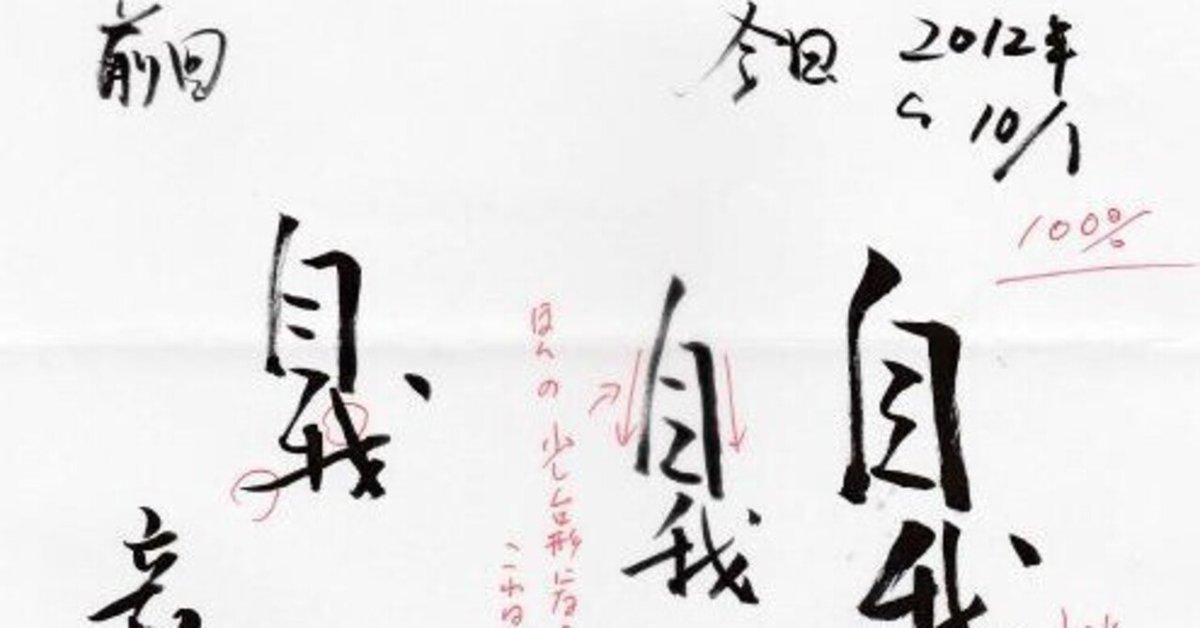 前回
今回
2012年
10/1
100%
自我
自我
自我
ほんの少し台形にな
これは